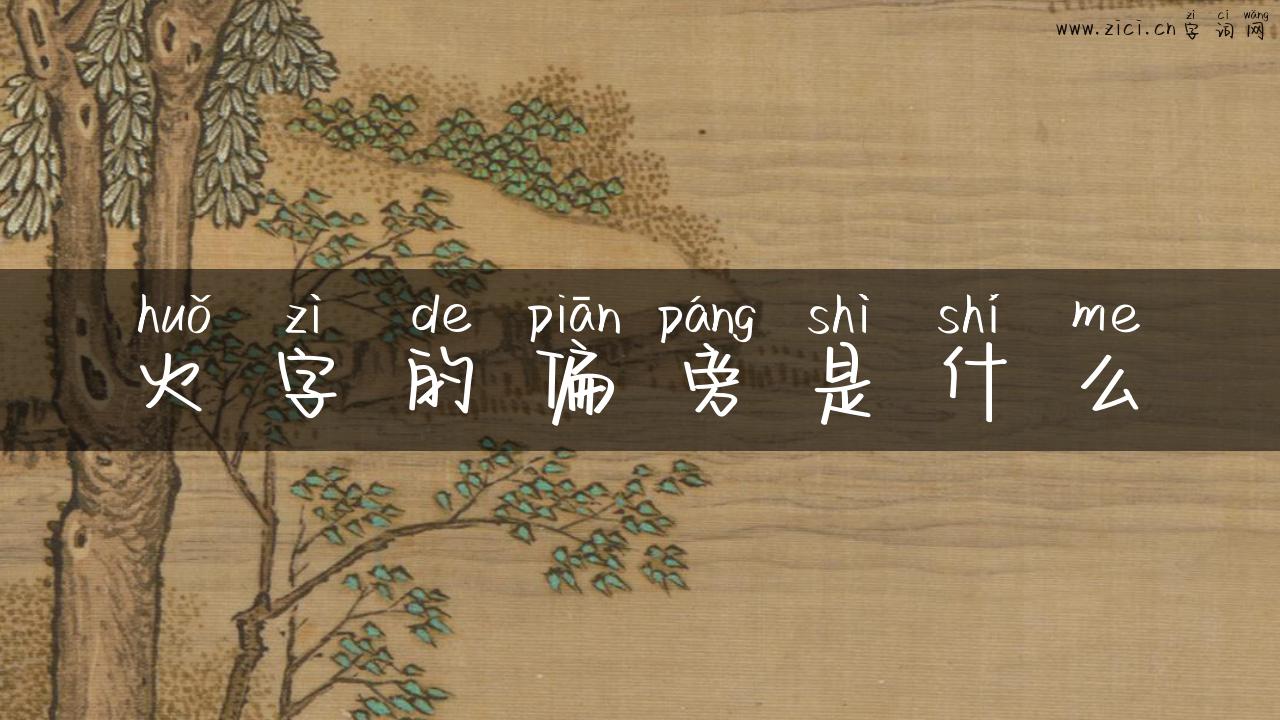 zì cí wǎng
www.zici.cn 字词网
huǒ zì de piān páng shì shí me
火字的偏旁是什么